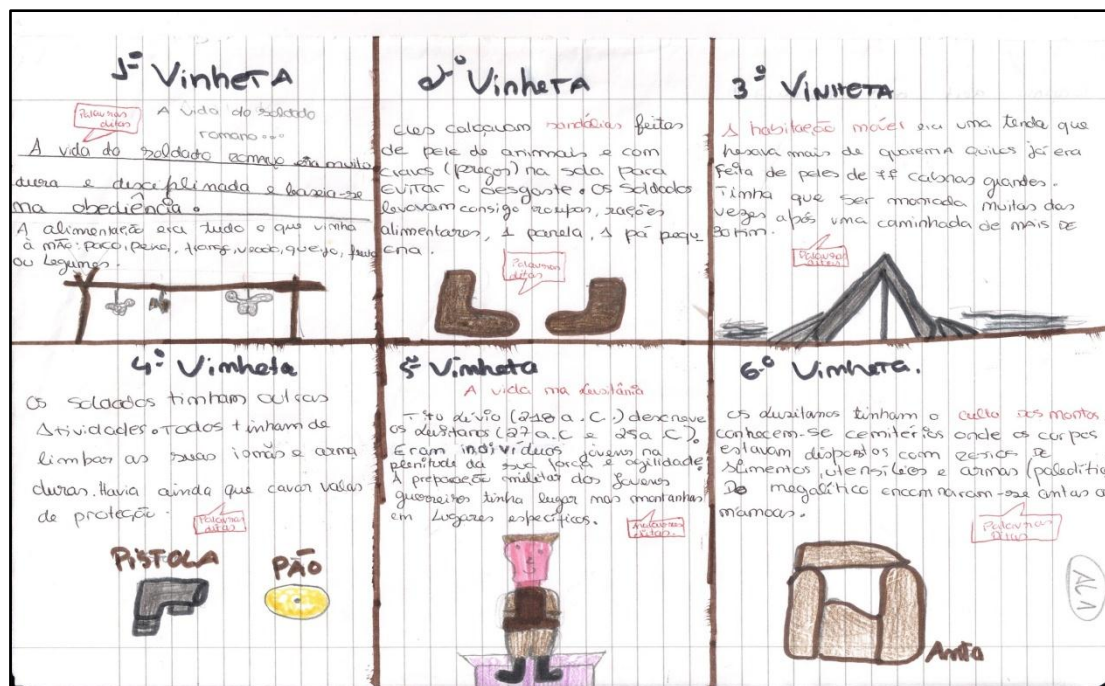 1ª Vinheta
Palavras ditas
A vida do soldado
romano...
A vida do soldado romano era muito
dura e disciplinada e baseia-se
na obediência.
A alimentação era tudo o que vinha
à mão: porco, frango, veado, queijo,
ou Legumes.
2ª Vinheta
Eles calçavam sandálias feitas
de pele de animais e com
cravos (pregos) na sola para
evitar o desgaste. Os soldados
levavam consigo roupas, rações
alimentares, 1 panela, 1 pá pequ
ena.
Palavras ditas
3ª Vinheta
A habitação móvel era uma tenda que
pesava mais de quarenta quilos já era
feita de peles de cabras grandes.
Tinha que ser montada muitas das
vezes após uma caminhada de mais de
30 km.
Palavras ditas
4ª Vinheta
Os soldados tinham outras
Atividades. Todos tinham de
limpar as suas e arma
duras. Havia ainda que cavar valas
de proteção.
Palavras ditas
PISTOLA
PÃO
5ª Vinheta
A vida na Lusitânia
Tito Lívio (218 a.C.) descreve
os Lusitanos (27 a.C e 25 a.C).
Eram indivíduos jovens na
plenitude da sua força e agilidade.
A preparação militar dos jovens
guerreiros tinha lugar nas montanhas
em Lugares específicos.
Palavras ditas.
6ª Vinheta.
Os Lusitanos tinham o culto dos mortos
conhecem-se cemitérios onde os corpos
estavam dispostos com restos de
alimentos, utensílios e armas (paleolítico
Do megalítico encontraram-se antas o
mamoas.
Palavras Ditas
AL1
Anta